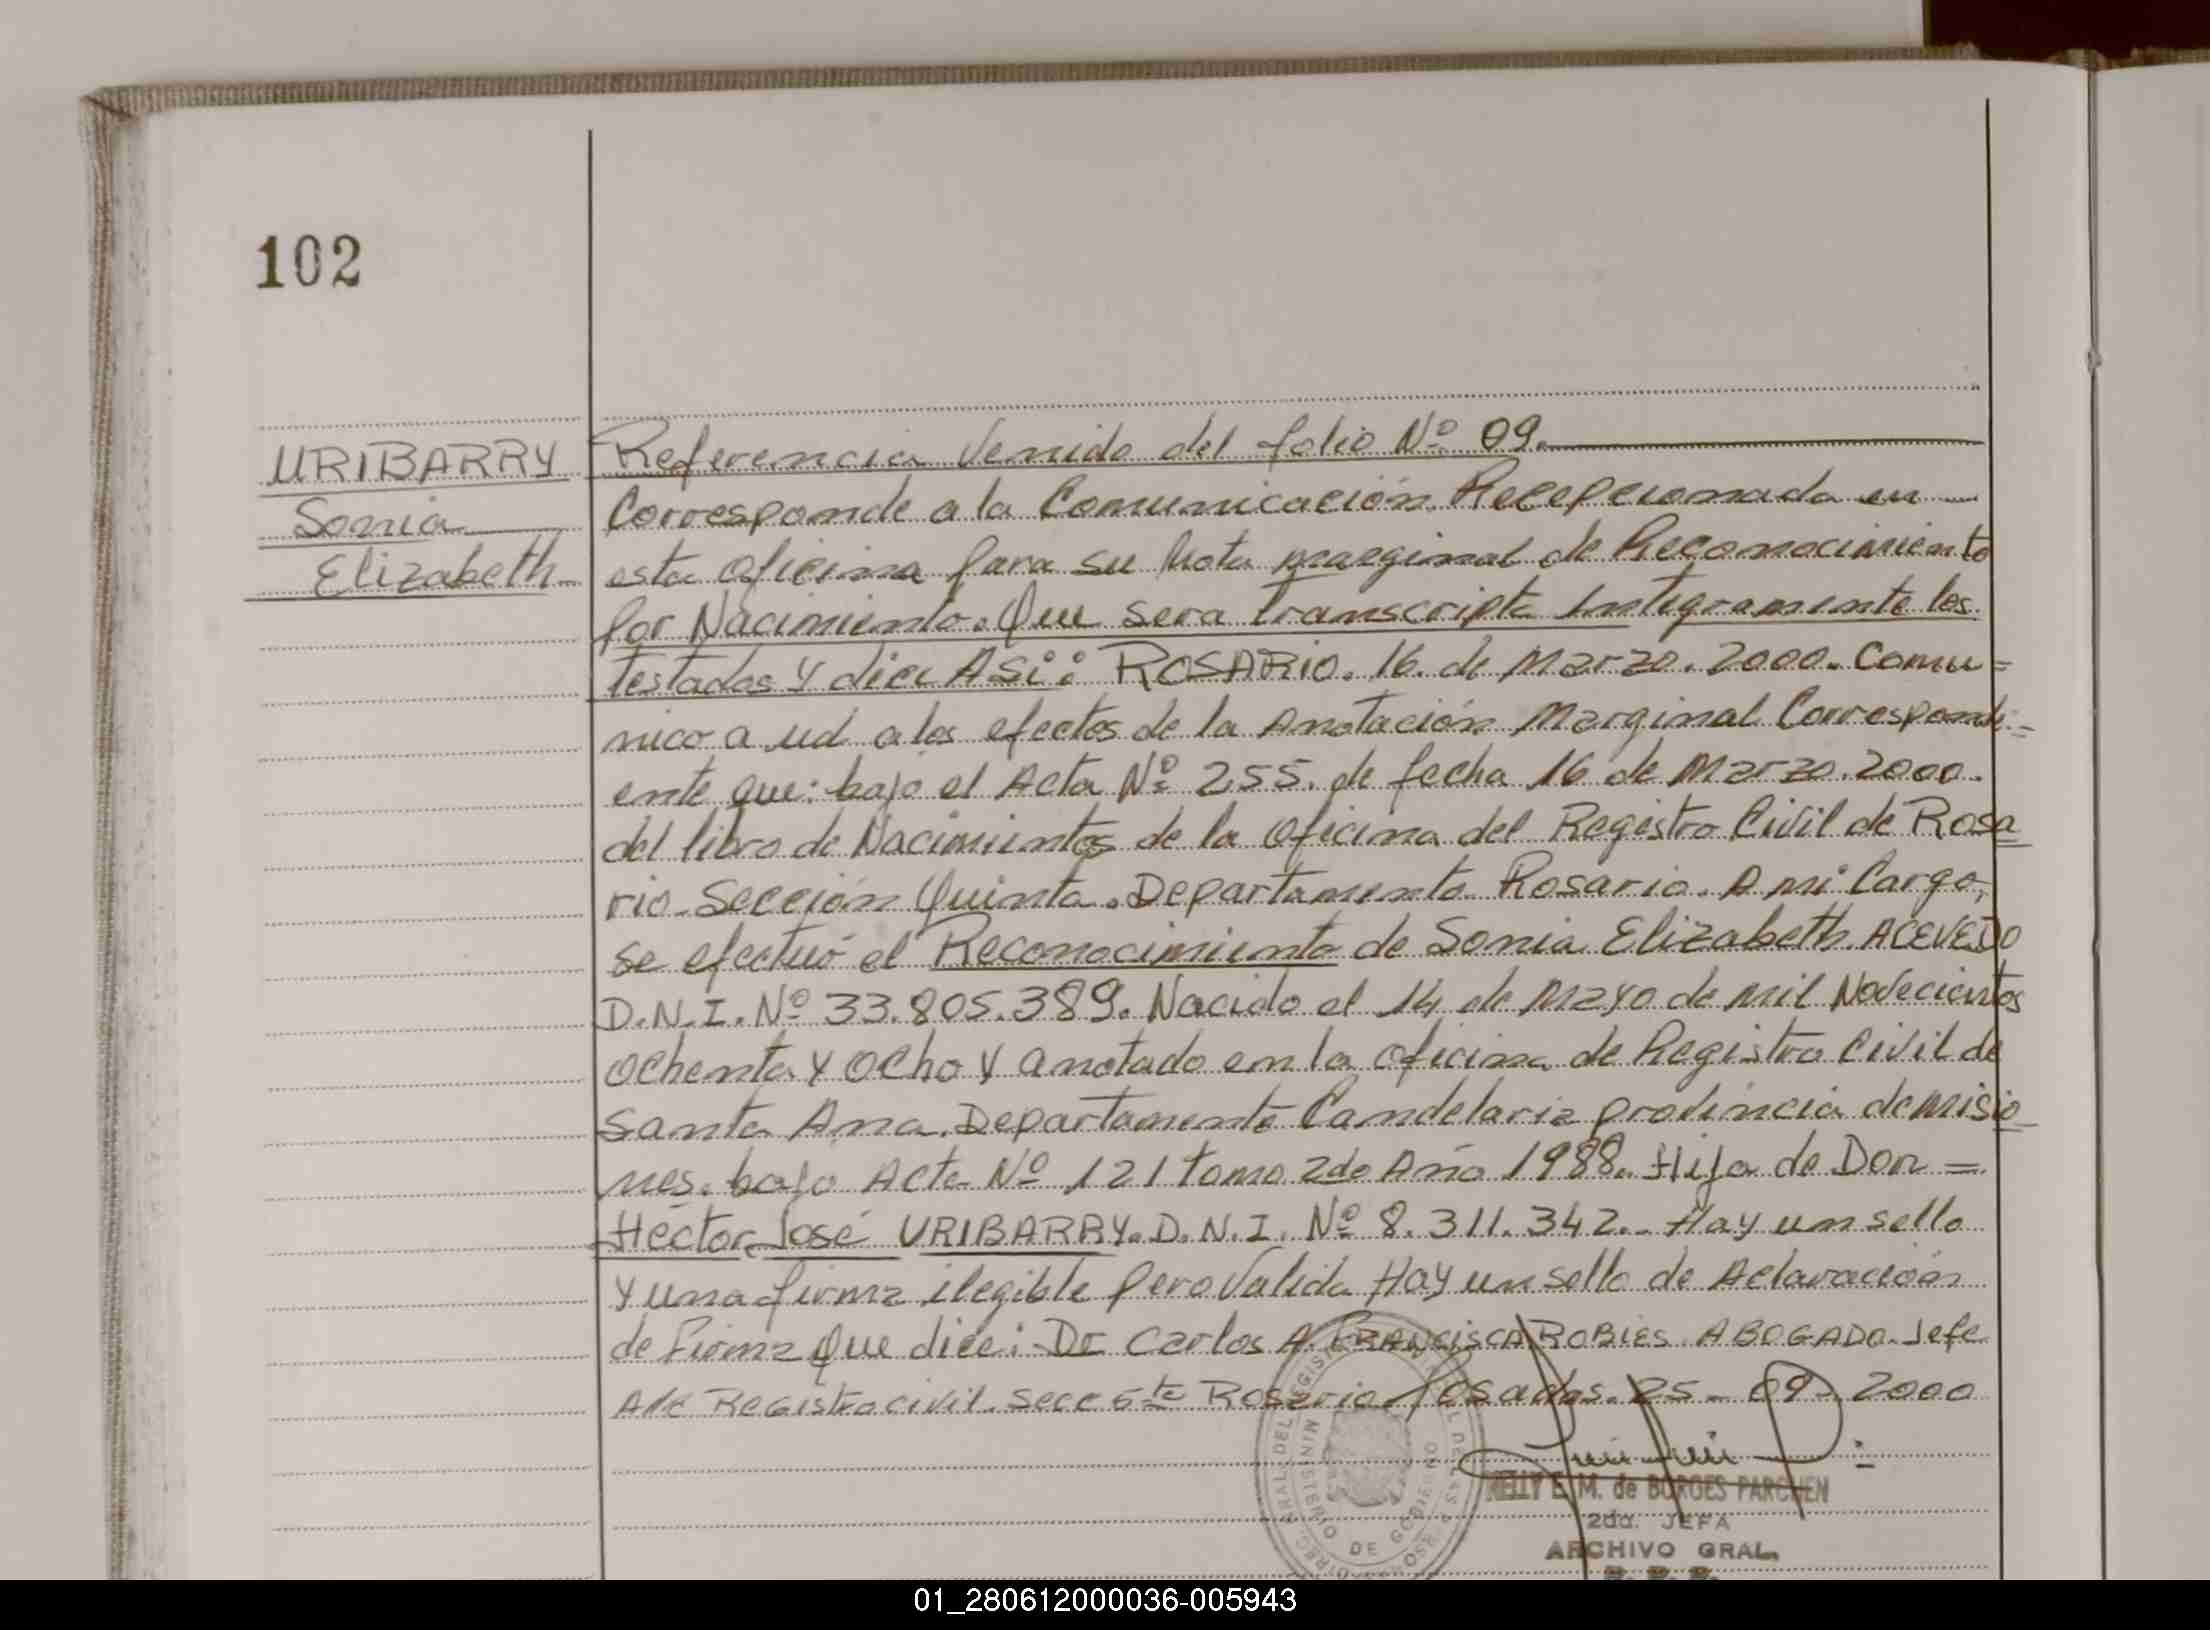 102
URIBARRY
Sonia
Elizabeth
Referencia Venido del folio Nº 09.
Corresponde a la Comunicación Recepcionada en
esta oficina para su Nota marginal de Reconocimiento
por Nacimiento. Que sera transcripta Integramente los
testados y dice ASi: ROSARIO. 16. de Marzo. 2000. Comu=
nico a ud a los efectos de la Anotación Marginal Correspondi=
ente que: bajo el Acta Nº 255. de fecha 16 de Marzo. 2000.
del libro de Nacimientos de la oficina del Registro Civil de Rosa
rio. Sección Quinta. Departamento Rosario. A mi Cargo,
se efectuó el Reconocimiento de Sonia Elizabeth ACEVEDO
D.N.I. Nº 33.805.389. Nacido el 14 de Mayo de mil Novecientos
ochenta y ocho y anotado en la oficina de Registro Civil de
Santa Ana. Departamento Candelaria provincia de misio
nes. bajo Acta Nº 121 tomo 2do Año 1988. Hija de Don =
Héctor José URIBARRY. D.N.I. Nº 8.311.342.- Hay un sello
y una firma ilegible pero Valida Hay un sello de Aclaración
de Firma Que dice: Dr Carlos A. FRANCISCA ROBLES ABOGADO. Jefe
Registro civil. Secc 5ta Rosario Posadas. 25 - 09 - 2000
NELLY E. M. de BORGES PARCHEN
2da. JEFA
ARCHIVO GRAL.
R. P. P.
MINISTERIO DE GOBIERNO
01_280612000036-005943